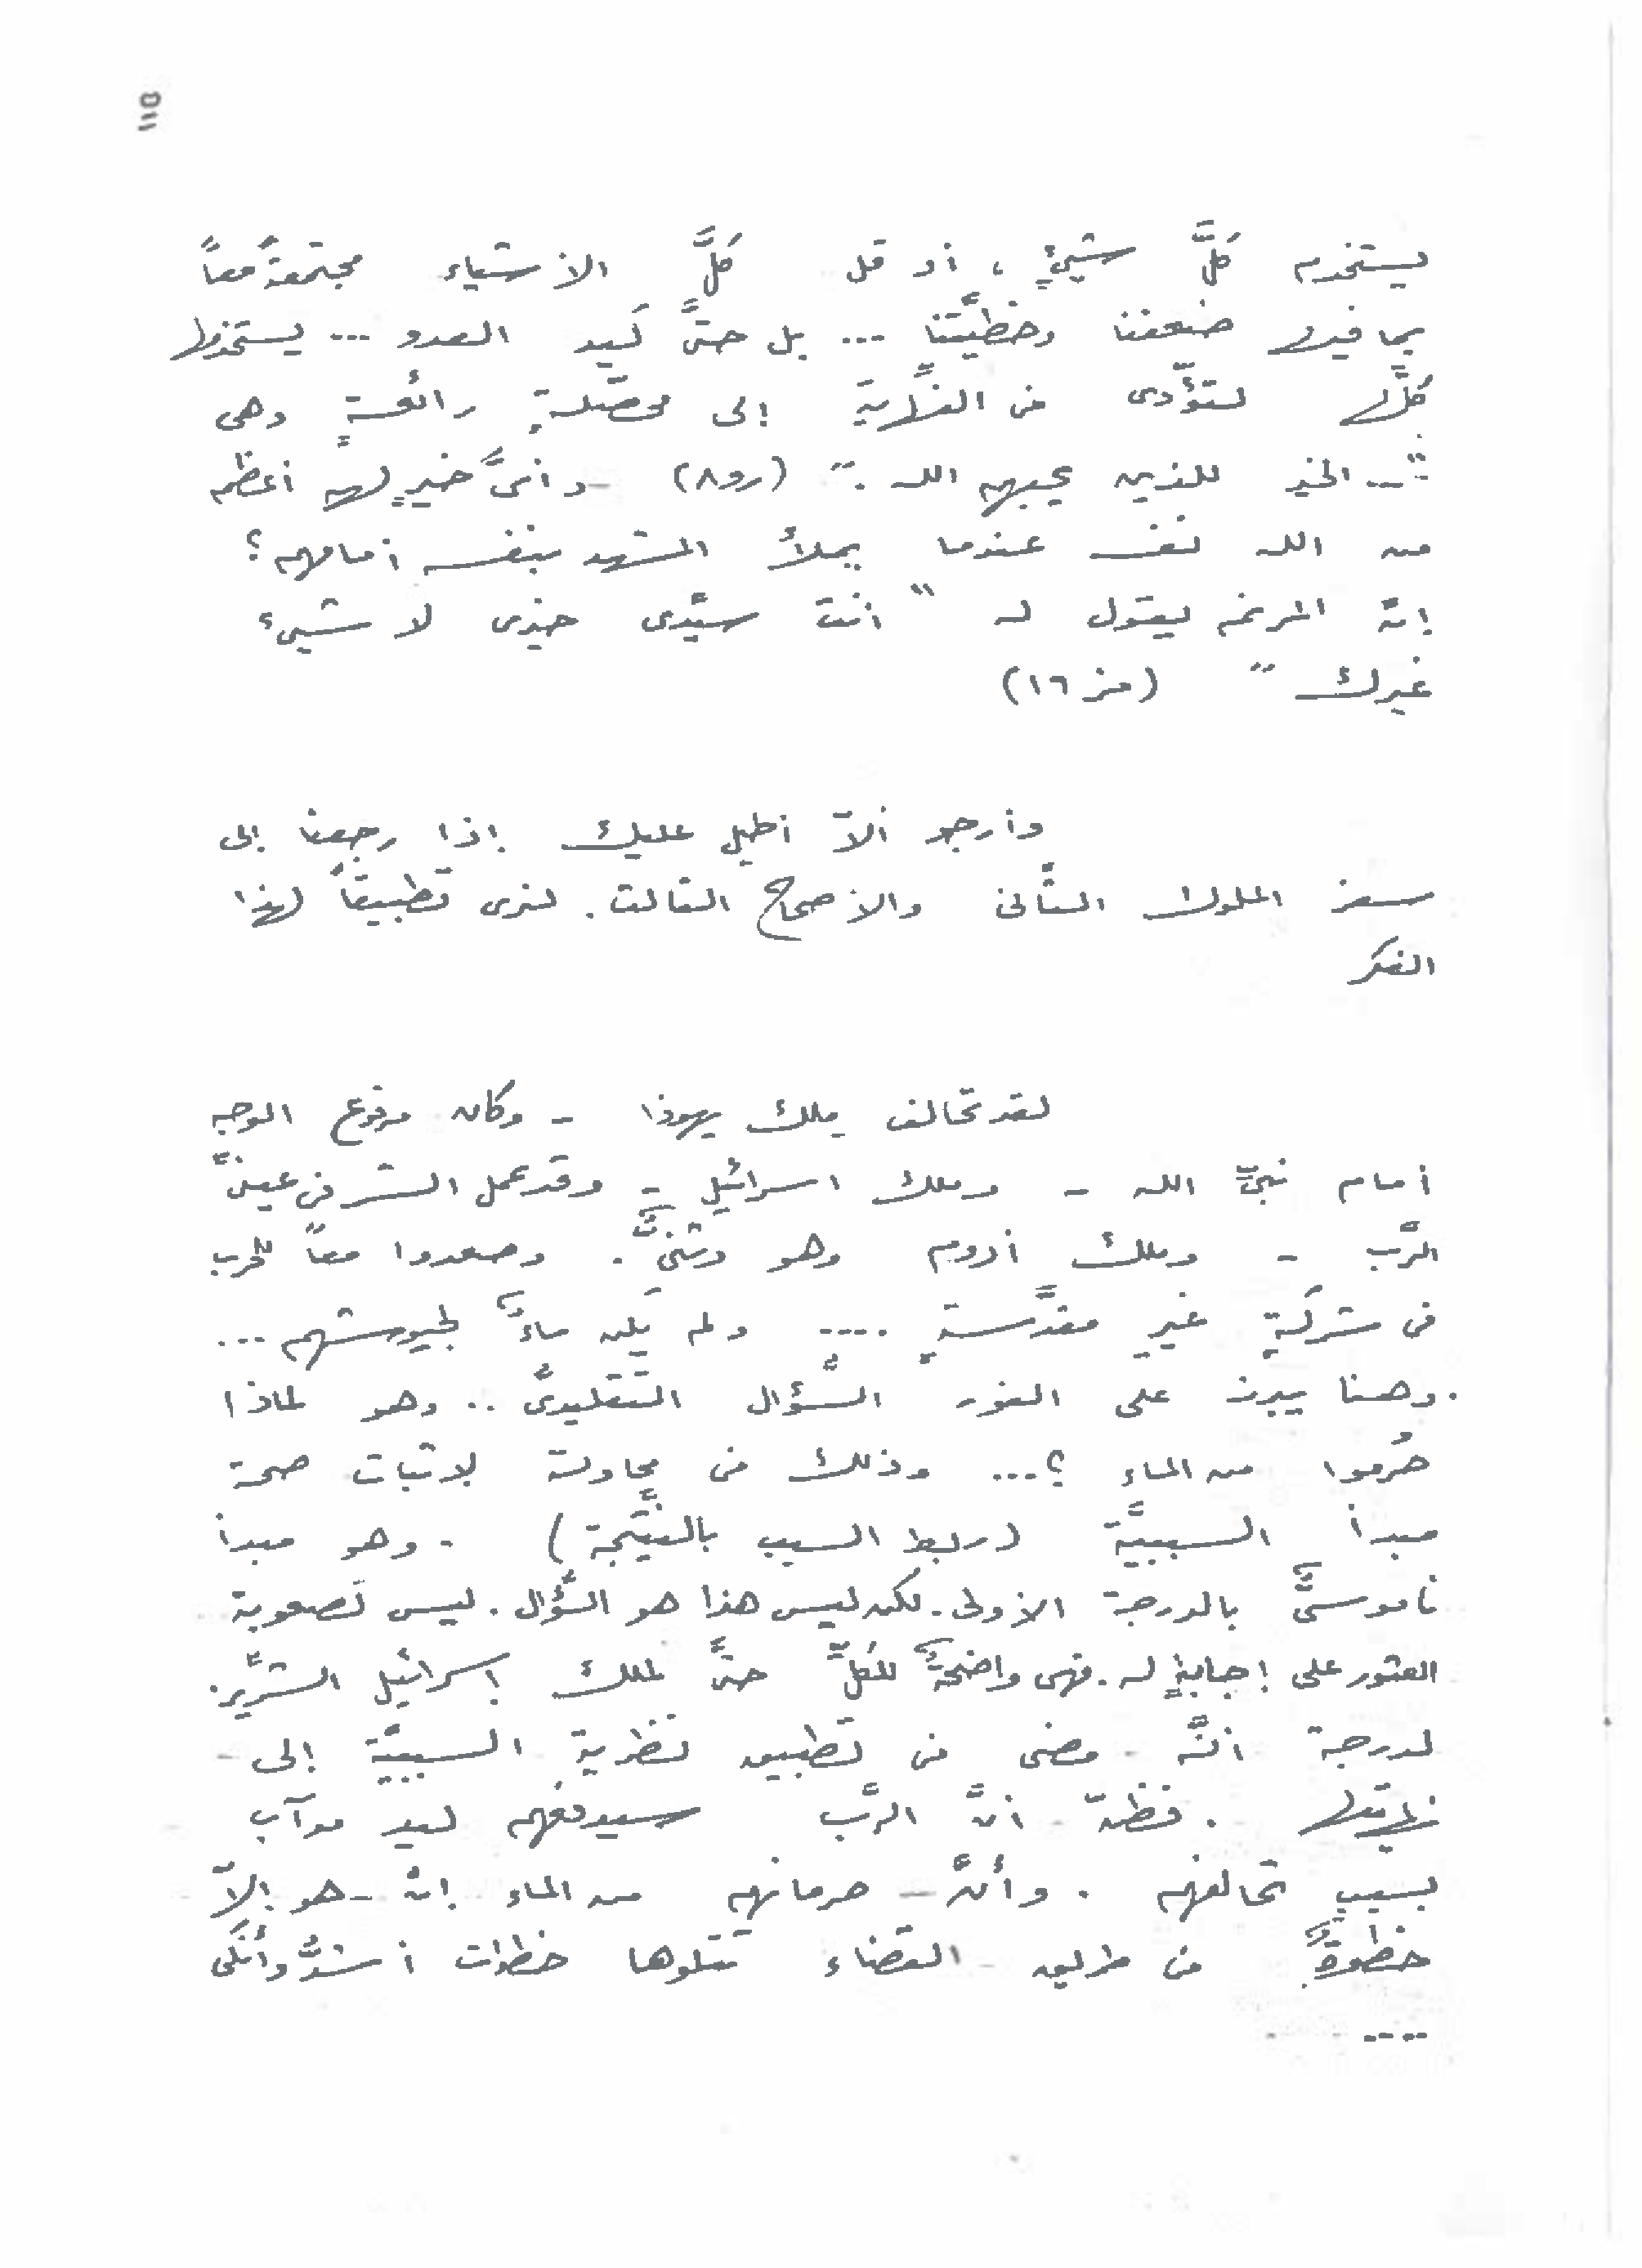 يستخدم كلَّ شيئٍ ، أو قل كلَّ الأشياء مجتمعةً معاً
بما فيها ضعفنا وخطيَّتنا ... بل حتىَّ كيد العدو ... يستخدمها
كلَّها لتؤدّى فى النِّهاية إلى محصّلةٍ رائعةٍ وهى
"... الخير للذين يحبهم الله . " (رو ٨) - وأىُّ خيرٍ لهم أعظم
من الله نفسه عندما يملأ المشهد بنفسه أمامهم ؟
إنَّ المرنم يقول له " أنت سيِّدى خيرى لا شيء
غيرك " (مز ١٦)
وأرجو ألاّ أطيل عليك إذا رجعنا إلى
سفر الملوك الثَّانى والأصحاح الثالث . لنرى تطبيقاً لهذا
الفكر
لقد تحالف ملك يهوذا - وكان مرفوع الوجه
أمام نبىِّ الله - وملك اسرائيل - وقد عمل الشر فى عينىِّ
الرَّب - وملك أدوم وهو وثنىٌّ . وصعدوا معاً للحرب
فى شركةٍ غيرِ مقدَّسةٍ .... ولم يكن ماءٌ لجيوشهم ...
. وهنا يبرز على الفور السُّؤال التَّقليدىُّ .. وهو لماذا
حُرموا من الماء ؟... وذلك فى محاولة لإثبات صحة
مبدأ السببيَّة (ربط السبب بالنَّتيجة) . وهو مبدأ
ناموسىٌّ بالدرجة الأولى . لكن ليس هذا هو السُّؤال . ليس لصعوبة
العثور على إجابةٍ له . فهى واضحةٌ للكلِّ حتىَّ لملك إسرائيل الشرِّير .
لدرجة أنَّه مضى فى تطبيق نظرية السببيَّة إلى
نهايتها . فظنّ أنَّ الرَّب سيدفعهم ليد موآب
بسبب تحالفهم . وأنَّ حرمانهم من الماء إن هو إلاّ
خطوةٌ فى طريق القضاء تتلوها خطوات أشدُّ وأنكى
....